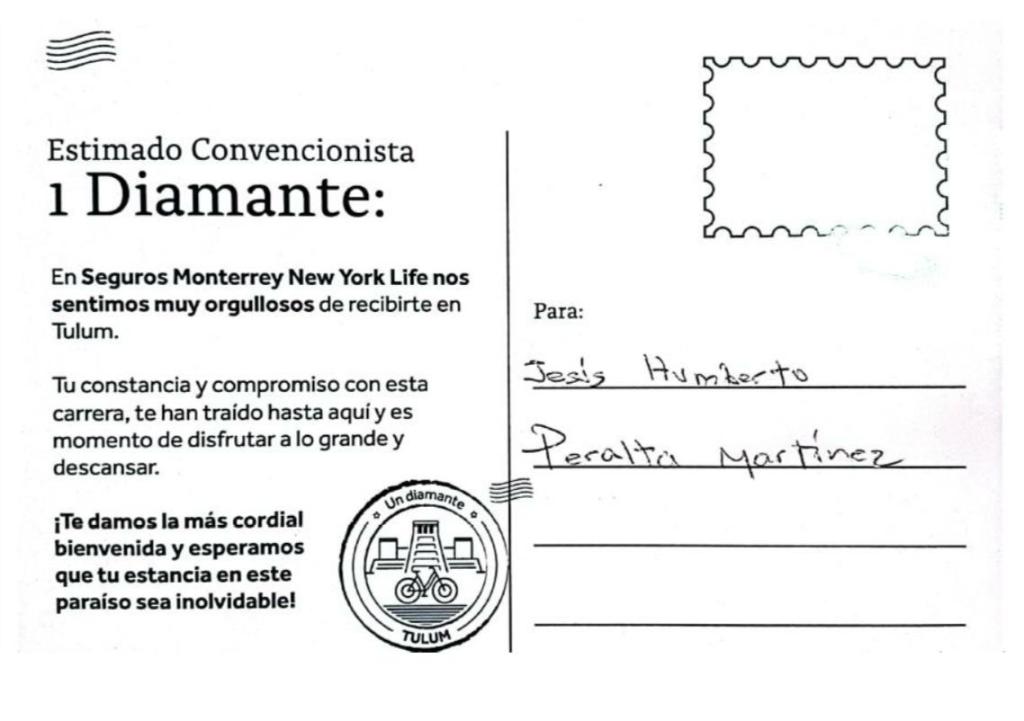 Estimado Convencionista
1 Diamante:
En Seguros Monterrey New York Life nos
sentimos muy orgullosos de recibirte en
Tulum.
Tu constancia y compromiso con esta
carrera, te han traído hasta aquí y es
momento de disfrutar a lo grande y
descansar.
¡Te damos la más cordial
bienvenida y esperamos
que tu estancia en este
paraíso sea inolvidable!
Un diamante
TULUM
Para:
Jesús Humberto
Peralta Martínez